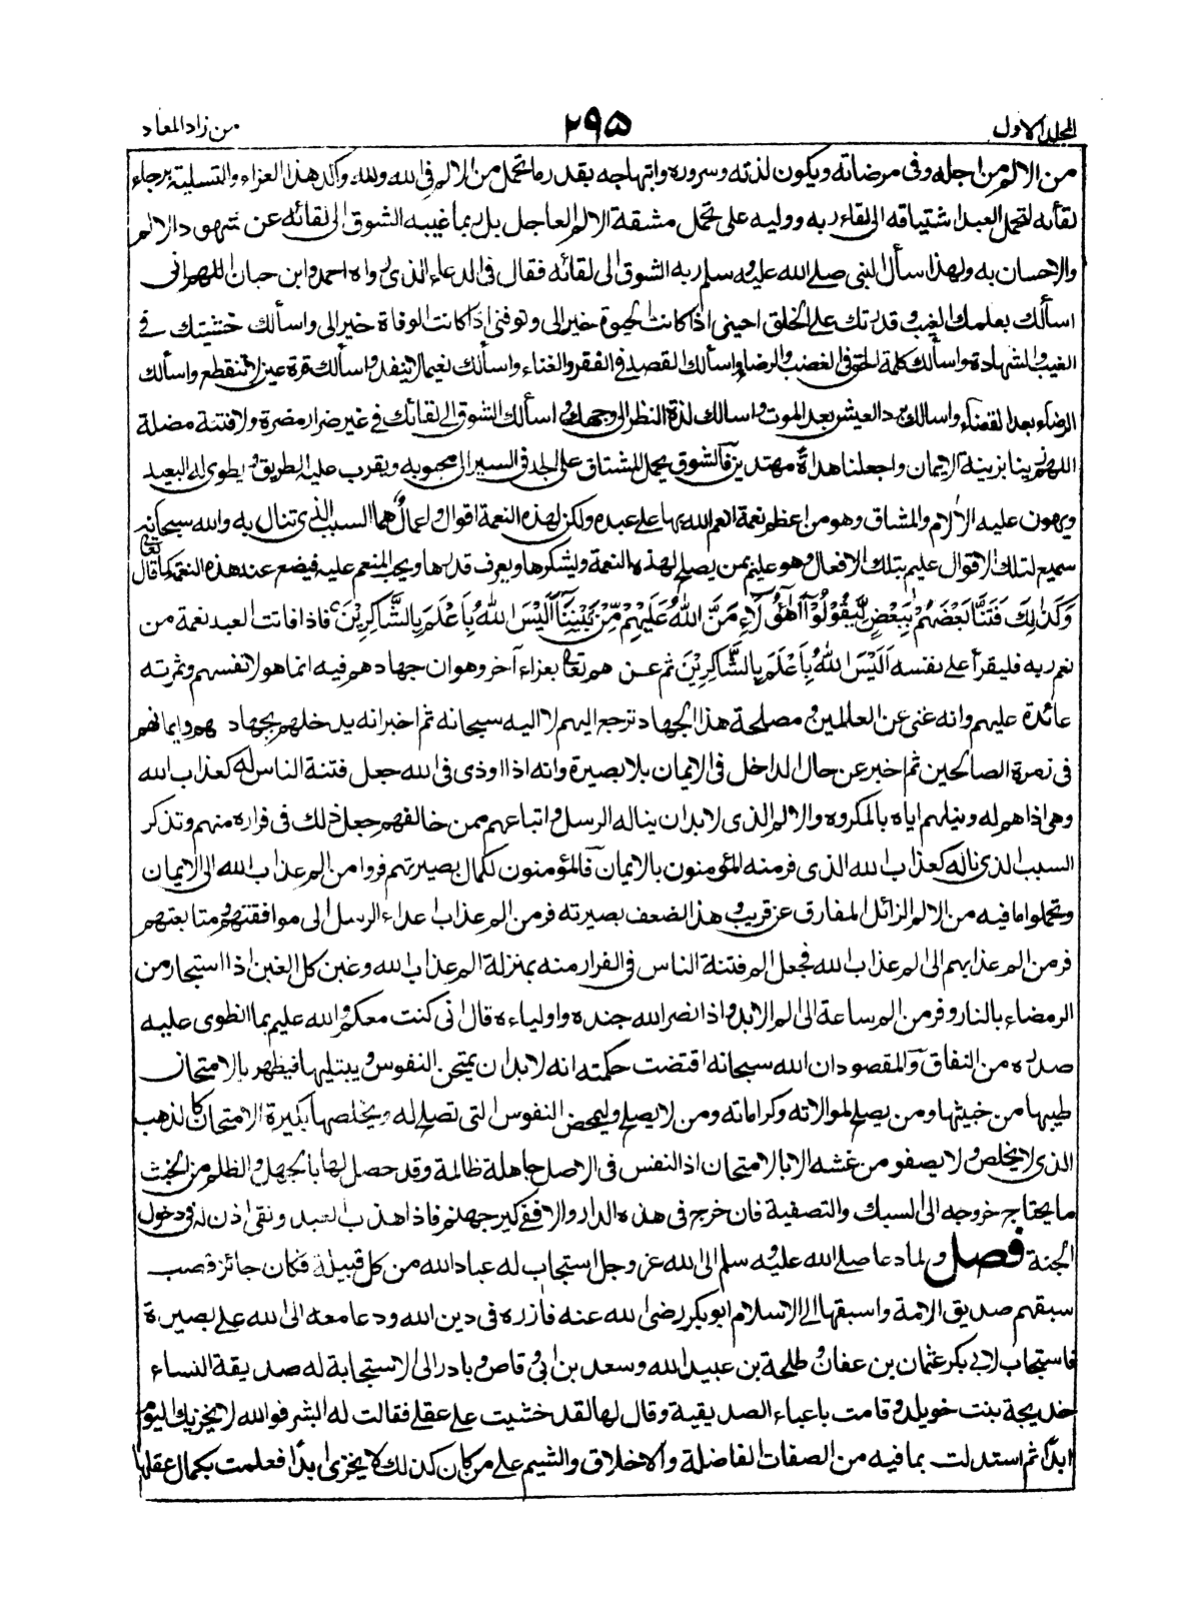 المجلد الاول
۲۹۵
من زاد المعاد
من الالم من اجله وفى مرضاته ويكون لذته وسروره وابتهاجه بقدر ما تحمل من الالم فى الله ولله واكد هذا العزاء والتسلية برجاء
لقائه لتحمل العبد اشتياقه الى لقاء ربه ووليه على تحمل مشقة الالم العاجل بل ربما غيبه الشوق الى لقائه عن شهود الالم
والاحسان به ولهذا سأل النبى صلے الله عليه وسلم ربه الشوق الى لقائه فقال فى الدعاء الذى رواه احمد وابن حبان اللهم انى
اسألك بعلمك الغيب وقدرتك على الخلق احينى اذا كانت الحيوة خير الى وتوفنى اذا كانت الوفاة خير الى واسألك خشيتك فے
الغيب والشهادة واسألك كلمة الحق فى الغضب والرضا واسألك القصد فى الفقر والغناء واسألك نعيما لا ينفد واسألك قرة عين لا تنقطع واسألك
الرضاء بعد القضاء واسالك برد العيش بعد الموت واسالك لذة النظر الى وجهك واسألك الشوق الى لقائك فى غير ضراء مضرة ولا فتنة مضلة
اللهم زينا بزينة الايمان واجعلنا هداة مهتدين فالشوق يحمل المشتاق على الجد فى السير الى محبوبه ويقرب عليه الطريق ويطوى له البعيد
ويهون عليه الآلام والمشاق وهو من اعظم نعمة انعم الله بها على عبده ولكن لهذه النعمة اقوال واعمال هما السبب الذى تنال به والله سبحانه
سميع لتلك الاقوال عليم بتلك الافعال وهو عليم بمن يصلح لهذه النعمة ويشكرها ويعرف قدرها ويحب المنعم عليه فيضع عنده هذه النعمة كما قال تعالى
وَكَذٰلِكَ فَتَنَّا بَعْضَهُمْ بِبَعْضٍ لِّيَقُوْلُوْٓا اَهٰٓؤُلَآءِ مَنَّ اللهُ عَلَيْهِمْ مِّنْ بَيْنِنَا اَلَيْسَ اللهُ بِاَعْلَمَ بِالشَّاكِرِيْنَ فاذا فاتت العبد نعمة من
نعم ربه فليقرأ على نفسه اَلَيْسَ اللهُ بِاَعْلَمَ بِالشَّاكِرِيْنَ ثم عزـهم تعالى بعزاء آخر وهو ان جهادهم فيه انما هو لانفسهم وثمرته
عائدة عليهم وانه غنى عن العالمين ومصلحة هذا الجهاد ترجع اليهم لا اليه سبحانه ثم اخبر انه يدخلهم بجهادهم وايمانهم
فى زمرة الصالحين ثم اخبر عن حال الداخل فى الايمان بلا بصيرة وانه اذا اوذى فى الله جعل فتنة الناس له كعذاب الله
وهى اذاهم له ونيلهم اياه بالمكروه والالم الذى لابد ان يناله الرسل واتباعهم ممن خالفهم جعل ذلك فى فراره منهم وتذكر
السبب الذى ناله كعذاب الله الذى فر منه المؤمنون بالايمان فالمؤمنون لكمال بصيرتهم فروا من الم عذاب الله الى الايمان
وتحملوا ما فيه من الالم الزائل المفارق عن قريب وهذا لضعف بصيرته فر من الم عذاب اعداء الرسل الى موافقتهم ومتابعتهم
فر من الم عذابهم الى الم عذاب الله فجعل الم فتنة الناس فى الفرار منه بمنزلة الم عذاب الله وغبن كل الغبن اذا استجار من
الرمضاء بالنار وفر من الم ساعة الى الم الابد واذا نصر الله جنده واولياءه قال انى كنت معكم والله عليم بما انطوى عليه
صدره من النفاق والمقصود ان الله سبحانه اقتضت حكمته انه لابد ان يمتحن النفوس ويبتليها فيظهر بالامتحان
طيبها من خبيثها ومن يصلح لموالاته وكراماته ومن لا يصلح وليمحض النفوس التى تصلح له ويخلصها بكيرة الامتحان كالذهب
الذى لا يخلص ولا يصفو من غشه الا بالامتحان اذ النفس فى الاصل جاهلة ظالمة وقد حصل لها بالجهل والظلم من الخبث
ما يحتاج خروجه الى السبك والتصفية فان خرج فى هذه الدار والا ففى كير جهنم فاذا هذب العبد ونقى اذن له فى دخول
الجنة فصل ولما دعا صلے الله عليه وسلم الى الله عز وجل استجاب له عباد الله من كل قبيلة فكان حائز قصب
سبقهم صديق الامة واسبقها الے الاسلام ابو بكر رضى الله عنه فآزره فى دين الله ودعا معه الى الله على بصيرة
فاستجاب لابى بكر عثمان بن عفان و طلحة بن عبيد الله وسعد بن ابى وقاص وبادر الى الاستجابة له صديقة النساء
خديجة بنت خويلد وقامت باعباء الصديقية وقال لها لقد خشيت على عقلے فقالت له ابشر فوالله لا يخزيك اليوم
ابدًا ثم استدلت بما فيه من الصفات الفاضلة والاخلاق والشيم على من كان كذلك لا يخزى ابدًا فعلمت بكمال عقلها